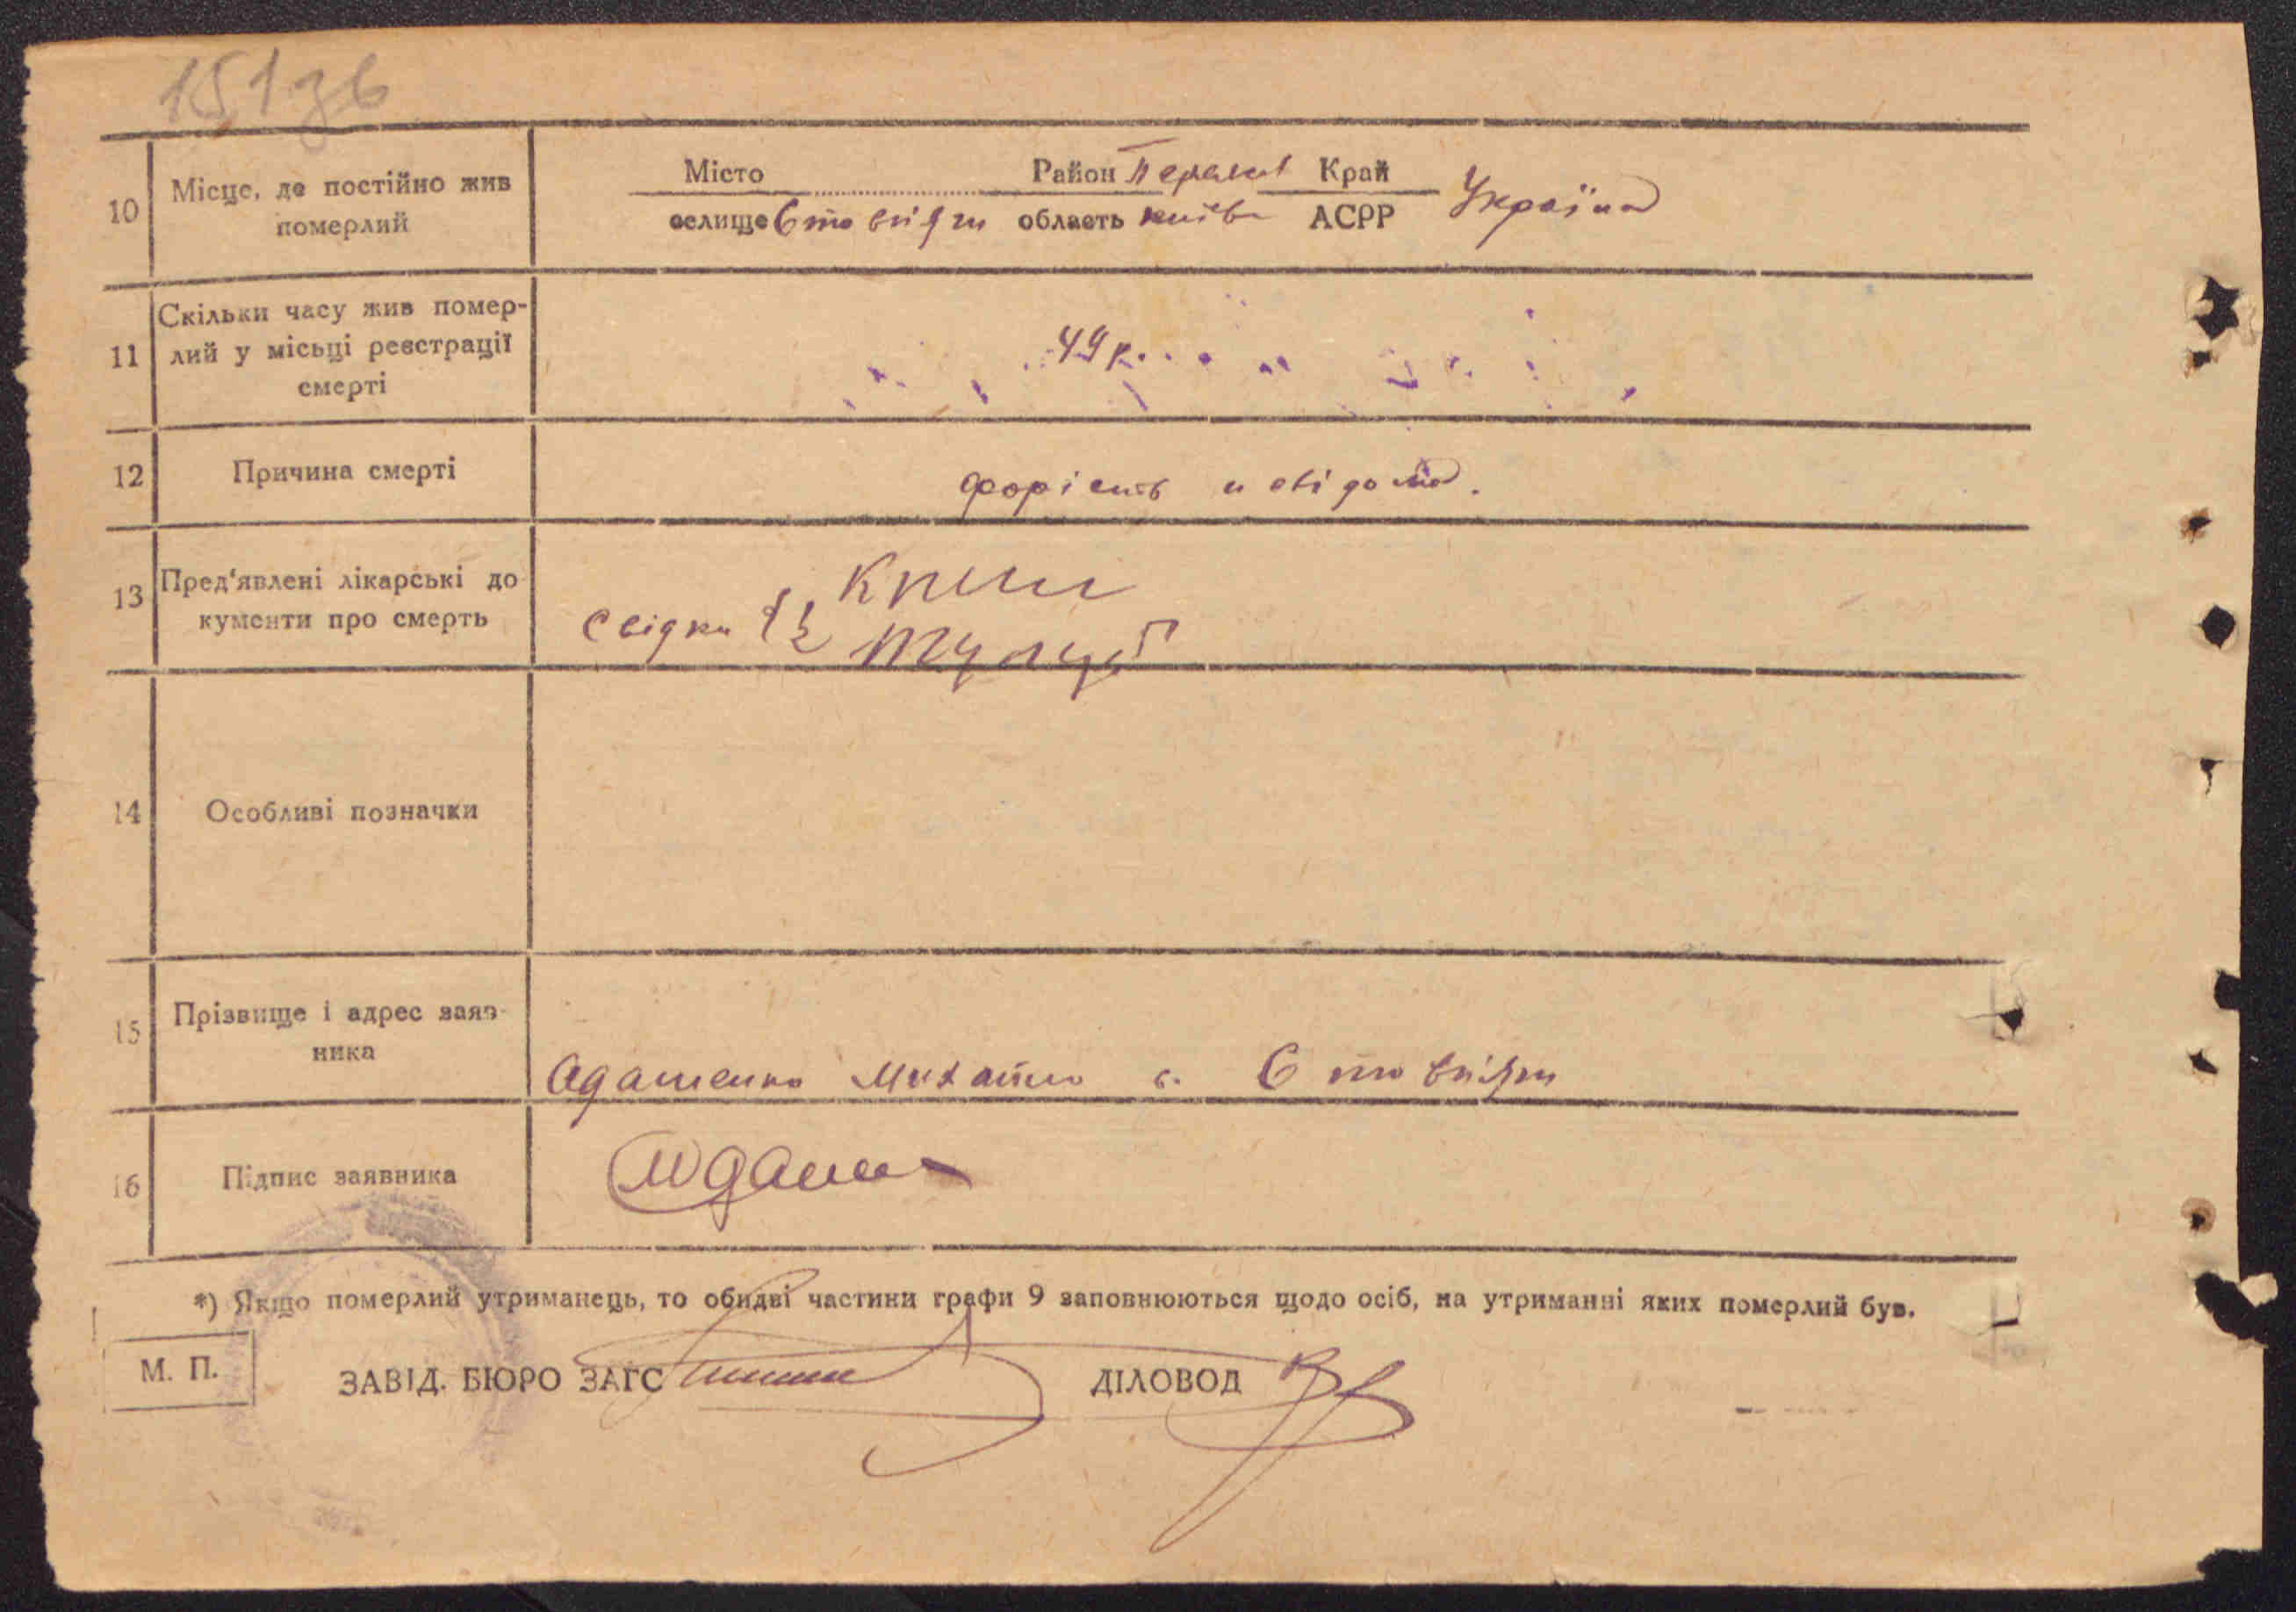 151зв
10 Місце, де постійно жив померлий
Місто Район Переясл Край
селище Стовп'яги область київ АСРР Україна
11 Скільки часу жив помер-
лий у місьці реєстрації
смерті
49 р.
12 Причина смерті
13 Пред'явлені лікарські до
кументи про смерть
Свідки
14 Особливі позначки
15 Прізвище і адрес заяв-
ника
Адаменко Михайло с. Стовп'яги
16 Підпис заявника
*) Якщо померлий утриманець, то обидві частини графи 9 заповнюються щодо осіб, на утриманні яких померлий був.
М. П.
ЗАВІД. БЮРО ЗАГС ДІЛОВОД